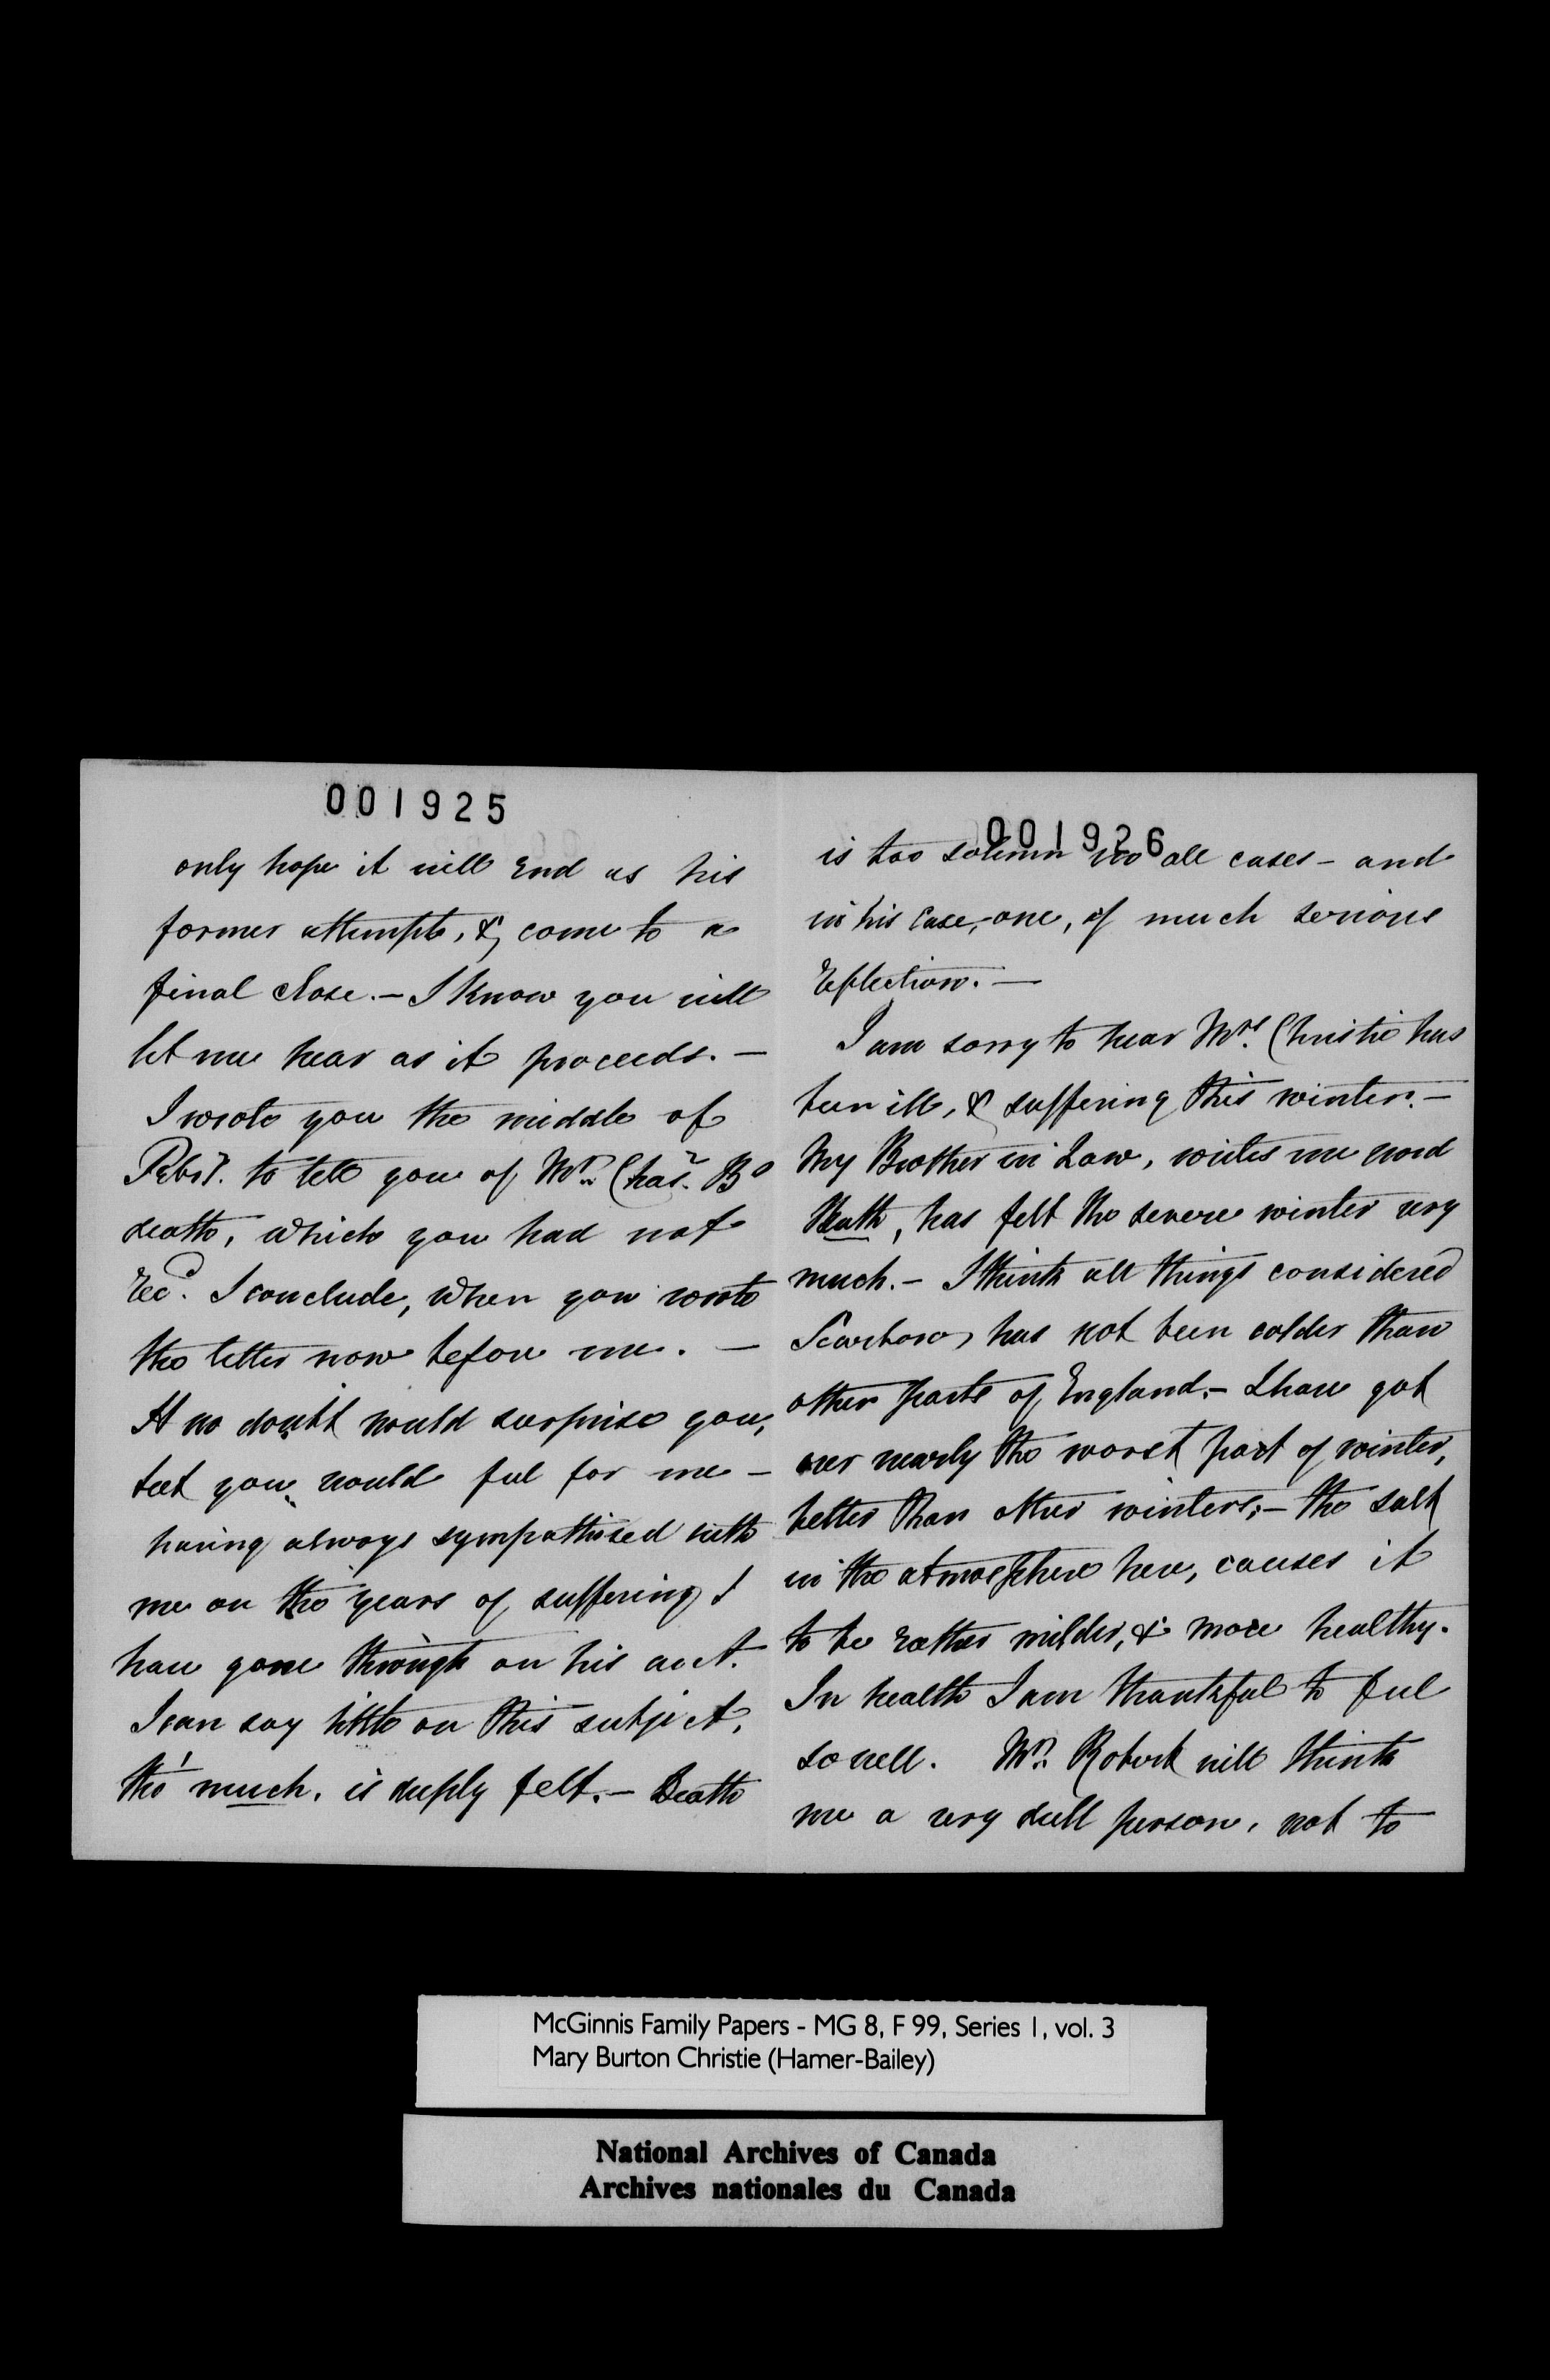 001925
only hope it will end as his
former attempts, & come to a
final close. – I know you will
let me hear as it proceeds. –
I wrote you the middle of
Febry. to tell you of Mr. Chas. Bs
death, which you had not
recd. I conclude, when you wrote
the letter now before me. –
It no doubt would surprise you,
but you would feel for me –
having always sympathised with
me on the years of suffering I
have gone through on his acct.
I can say little on this subject,
tho' much, is deeply felt. – Death
001926
is too solemn in all cases – and
in his case, one, of much serious
reflection. –
I am sorry to hear Mrs. Christie has
been ill, & suffering this winter. –
My Brother in Law, writes me word
Heath, has felt the severe winter very
much. – I think all things considered
Scarboro, has not been colder than
other parts of England. – I have got
over nearly the worst part of winter,
better than other winters; – the salt
in the atmosphere here, causes it
to be rather milder, & more healthy.
In health I am thankful to feel
so well. Mr. Robert will think
me a very dull person, not to
McGinnis Family Papers - MG 8, F 99, Series 1, vol. 3
Mary Burton Christie (Hamer-Bailey)
National Archives of Canada
Archives nationales du Canada